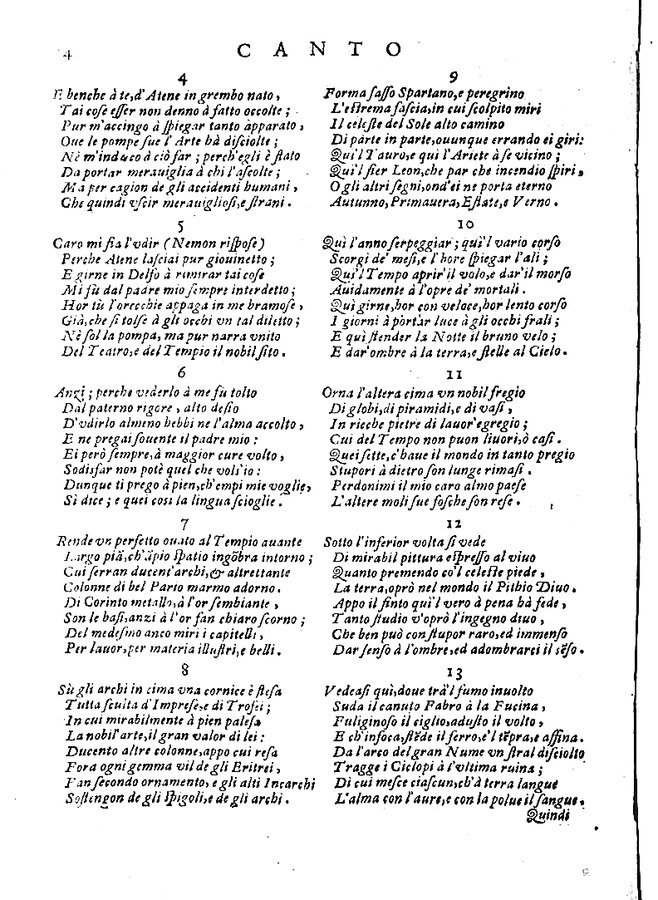 4
CANTO
4
E benche à te, d'Atene in grembo nato,
Tai cose esser non denno à fatto occolte;
Pur m'accingo à spiegar tanto apparato,
Oue le pompe sue l'Arte hà disciolte;
Nè m'induco à ciò far; perch'egli è stato
Da portar merauiglia à chi l'ascolte;
Ma per cagion de gli accidenti humani,
Che quindi vscir merauigliosi, e strani.
5
Caro mi sia l'vdir (Nemon rispose)
Perche Atene lasciai pur giouinetto;
E girne in Delfo à rimirar tai cose
Mi fù dal padre mio sempre interdetto;
Hor tù l'orecchie appaga in me bramose,
Già, che si tolse à gli occhi vn tal diletto;
Nè sol la pompa, ma pur narra vnito
Del Teatro, e del Tempio il nobil sito.
6
Anzi; perche vederlo à me fù tolto
Dal paterno rigore, alto desio
D'vdirlo almeno hebbi ne l'alma accolto,
E ne pregai souente il padre mio:
Ei però sempre, à maggior cure volto,
Sodisfar non potè quel che vols'io:
Dunque ti prego à pien, ch'empi mie voglie,
Sì dice; e quei così la lingua scioglie.
7
Rende vn perfetto ouato al Tempio auante
Largo piã, ch'ãpio spatio ingõbra intorno;
Cui serran ducent'archi, & altrettante
Colonne di bel Pario marmo adorno.
Di Corinto metallo, à l'or sembiante,
Son le basi, anzi à l'or fan chiaro scorno;
Del medesmo anco miri i capitelli,
Per lauor, per materia illustri, e belli.
8
Sù gli archi in cima vna cornice è stesa
Tutta sculta d'Imprese, e di Trofei;
In cui mirabilmente à pien palesa
La nobil'arte, il gran valor di lei:
Ducento altre colonne, appo cui resa
Fora ogni gemma vil de gli Eritrei,
Fan secondo ornamento, e gli alti Incarchi
Sostengon de gli Spigoli, e de gli archi.
9
Forma sasso Spartano, e peregrino
L'estrema fascia, in cui scolpito miri
Il celeste del Sole alto camino
Di parte in parte, ouunque errando ei giri:
Qui'l Tauro, e qui l'Ariete à se vicino;
Qui'l fier Leon, che par che incendio spiri,
O gli altri segni, ond'ei ne porta eterno
Autunno, Primauera, Estate, e Verno.
10
Quì l'anno serpeggiar; qui'l vario corso
Scorgi de' mesi, e l'hore spiegar l'ali;
Qui'l Tempo aprir'il volo, e dar'il morso
Auidamente à l'opre de' mortali.
Quì girne, hor con veloce, hor lento corso
I giorni à pòrtàr luce à gli occhi frali;
E quì stender la Notte il bruno velo;
E dar'ombre à la terra, e stelle al Cielo.
11
Orna l'altera cima vn nobil fregio
Di globi, di piramidi, e di vasi,
In ricche pietre di lauor'egregio;
Cui del Tempo non puon liuori, ò casi.
Quei sette, c'haue il mondo in tanto pregio
Stupori à dietro son lunge rimasi.
Perdonimi il mio caro almo paese
L'altere moli sue fosche son rese.
12
Sotto l'inferior volta si vede
Di mirabil pittura espresso al viuo
Quanto premendo co'l celeste piede,
La terra, oprò nel mondo il Pithio Diuo.
Appo il finto qui'l vero à pena hà fede,
Tanto studio v'oprò l'ingegno diuo,
Che ben può con stupor raro, ed immenso
Dar senso à l'ombre, ed adombrarci il sẽso.
13
Vedeasi quì, doue trà'l fumo inuolto
Suda il canuto Fabro à la Fucina,
Fuliginoso il ciglio, adusto il volto,
E ch'infoca, stẽde il ferro, e'l tẽpra, e affina.
Da l'arco del gran Nume vn stral disciolto
Tragge i Ciclopi à l'vltima ruina;
Di cui mesce ciascun, ch'à terra langue
L'alma con l'aure, e con la polue il sangue.
Quindi